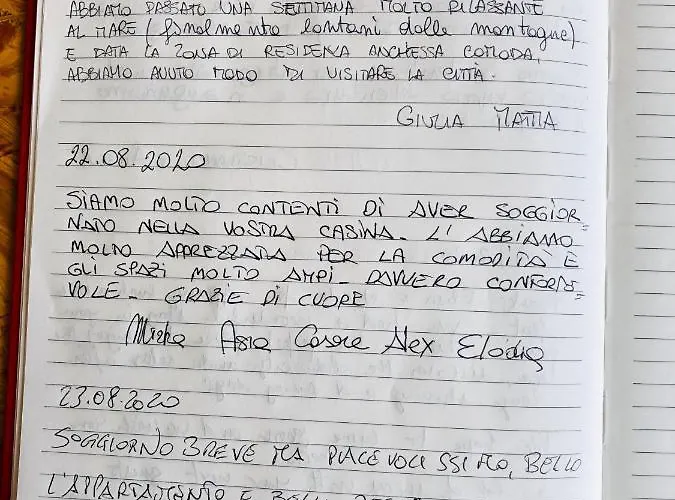 ABBIAMO PASSATO UNA SETTIMANA MOLTO RILASSANTE
AL MARE (finalmente lontani dalle montagne)
E DATA LA ZONA DI RESIDENZA ANCH'ESSA COMODA,
ABBIAMO AVUTO MODO DI VISITARE LA CITTÀ.
GIULIA MATTIA
22.08.2020
SIAMO MOLTO CONTENTI DI AVER SOGGIOR=
NATO NELLA VOSTRA CASINA. L'ABBIAMO
MOLTO APPREZZATA PER LA COMODITÀ E
GLI SPAZI MOLTO AMPI. DAVVERO CONFORTE=
VOLE. GRAZIE DI CUORE
Asia Alex
23.08.2020
SOGGIORNO BREVE MA PIACEVOLISSIMO, BELLO
L'APPARTAMENTO E